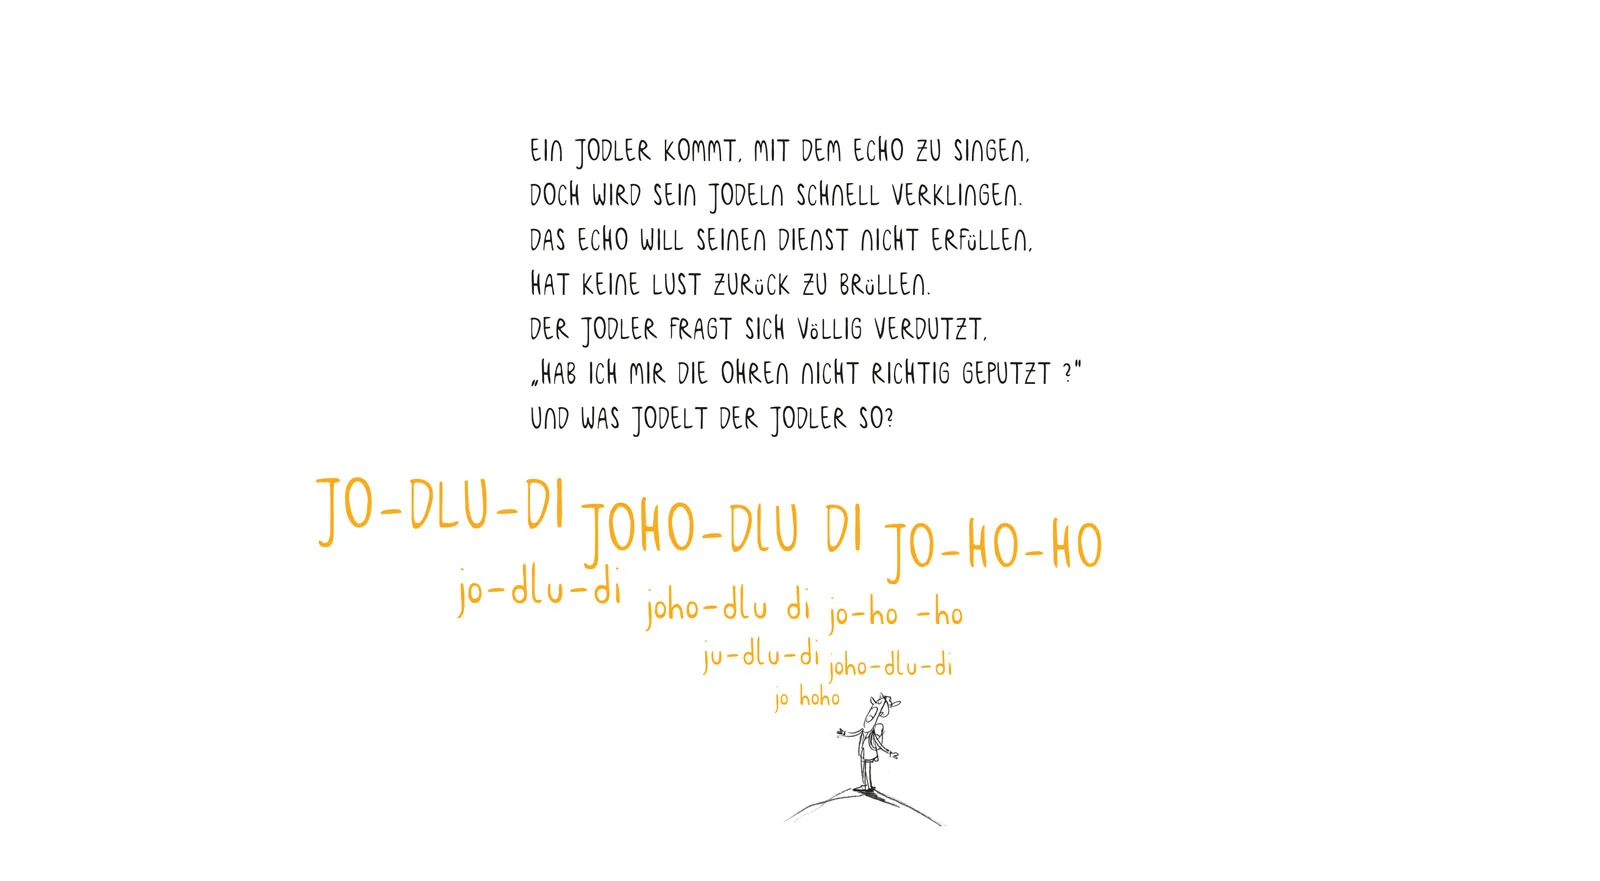 EIN JODLER KOMMT, MIT DEM ECHO ZU SINGEN,
DOCH WIRD SEIN JODELN SCHNELL VERKLINGEN.
DAS ECHO WILL SEINEN DIENST NICHT ERFüLLEN,
HAT KEINE LUST ZURüCK ZU BRüLLEN.
DER JODLER FRAGT SICH VöLLIG VERDUTZT,
„HAB ICH MIR DIE OHREN NICHT RICHTIG GEPUTZT ?"
UND WAS JODELT DER JODLER SO?
JO-DLU-DI JOHO-DLU DI JO-HO-HO
jo-dlu-di joho-dlu di jo-ho -ho
ju-dlu-di joho-dlu-di
jo hoho